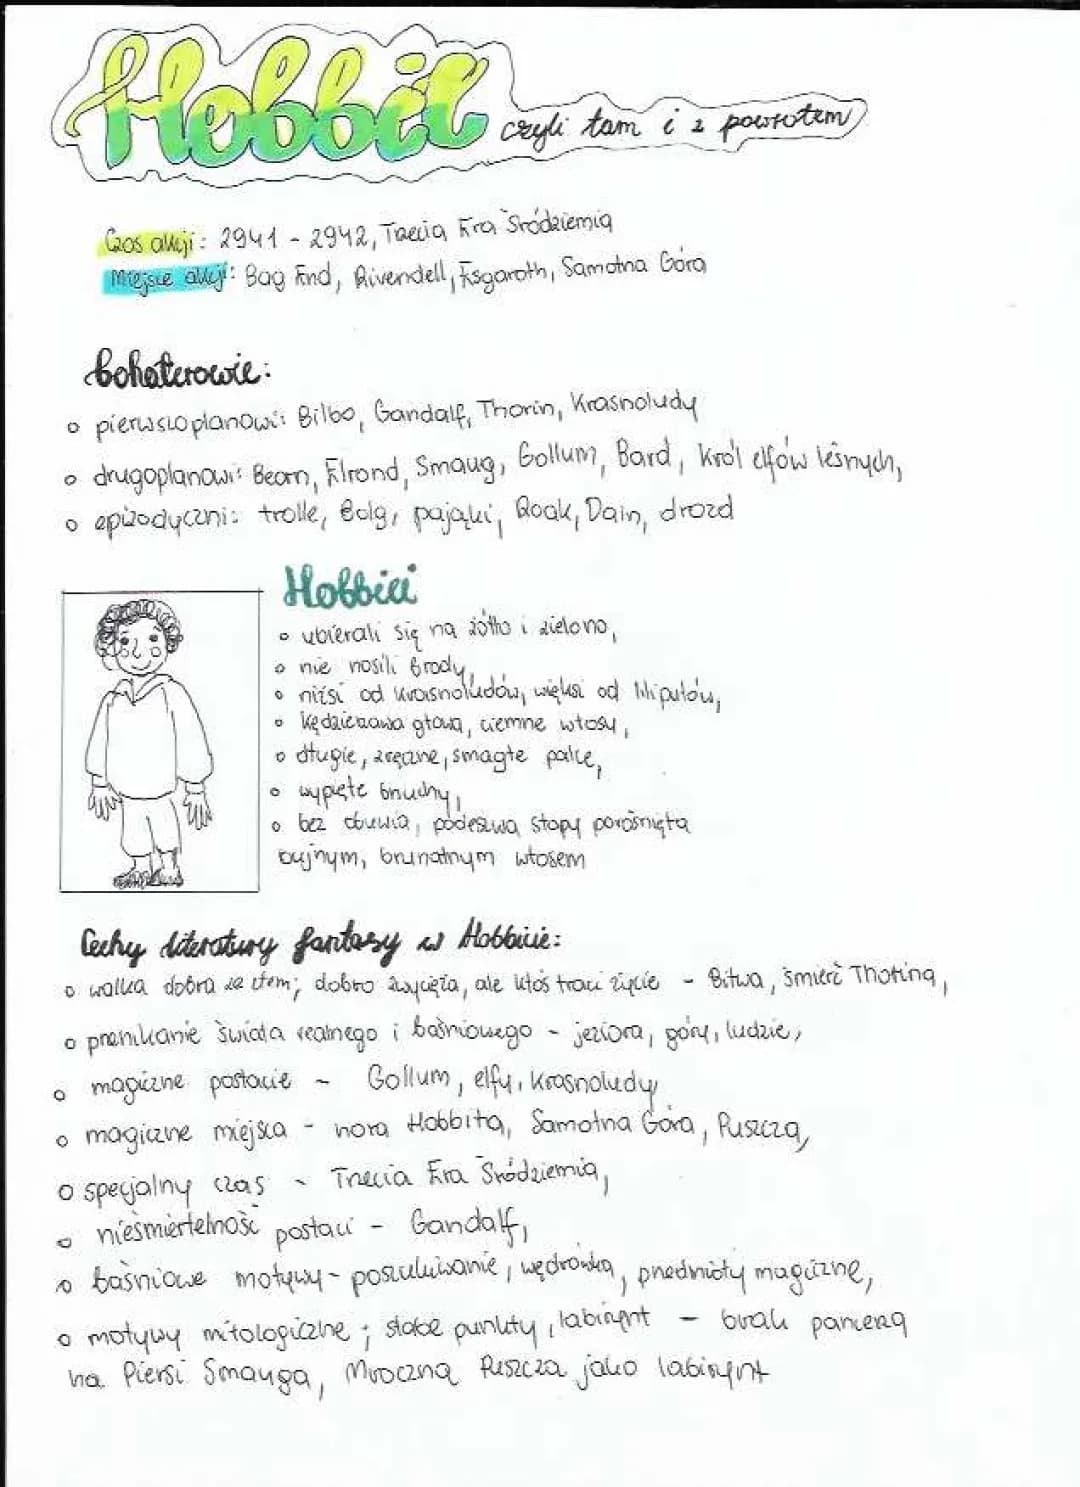 Hobbit czyli tam i z powrotem
Czas akcji: 2941 - 2942, Trzecia Era Śródziemia
Miejsce akcji: Bag End, Rivendell, Esgaroth, Samotna Góra
bohaterowie:
o pierwszoplanowi: Bilbo, Gandalf, Thorin, Krasnoludy
o drugoplanowi: Beorn, Elrond, Smaug, Gollum, Bard, król elfów leśnych,
o epizodyczni: trolle, Bolg, pająki, Roak, Dain, drozd
Hobbici
o ubierali się na żółto i zielono,
o nie nosili brody,
o niżsi od krasnoludów, więksi od liliputów,
o kędzierzawa głowa, ciemne włosy,
o długie, zręczne, smagłe palce,
o wypięte brzuchy,
o bez obuwia, podeszwa stopy porośnięta
bujnym, brunatnym włosem
Cechy literatury fantasy w Hobbicie:
o walka dobra ze złem; dobro zwycięża, ale ktoś traci życie - Bitwa, śmierć Thorina,
o przenikanie świata realnego i baśniowego - jeziora, góry, ludzie,
o magiczne postacie - Gollum, elfy, krasnoludy
o magiczne miejsca - nora Hobbita, Samotna Góra, Puszcza,
o specjalny czas - Trzecia Era Śródziemia,
o nieśmiertelność postaci - Gandalf,
o baśniowe motywy - poszukiwanie, wędrówka, przedmioty magiczne,
o motywy mitologiczne; słabe punkty, labirynt - brak pancerza
na Piersi Smauga, Mroczna Puszcza jako labirynt